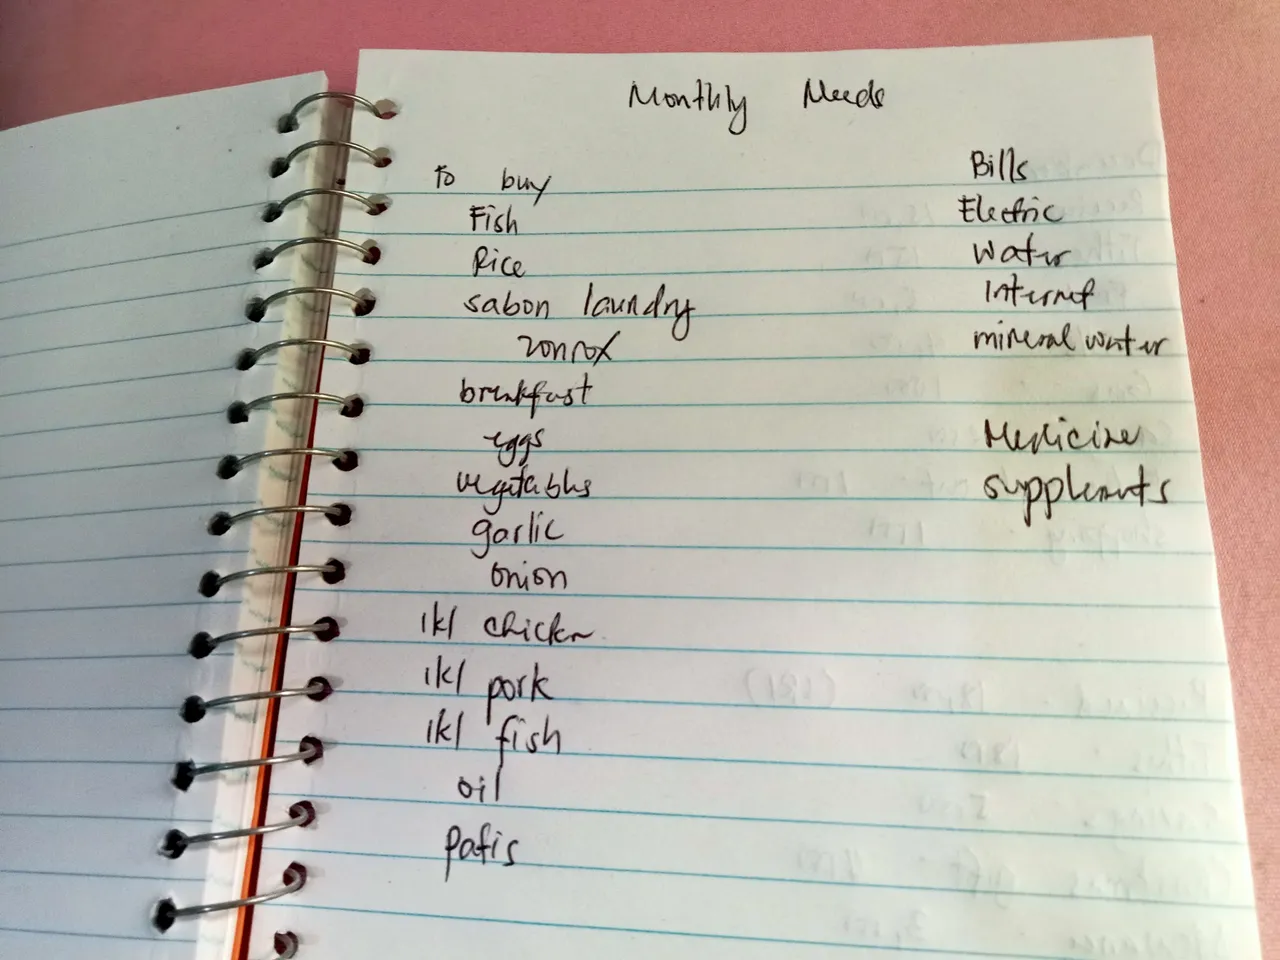 Monthly Needs
to buy
Fish
Rice
sabon laundry
zonrox
breakfast
eggs
vegetables
garlic
onion
1kl chicken
1kl pork
1kl fish
oil
patis
Bills
Electric
Water
Internet
mineral water
Medicine
supplements